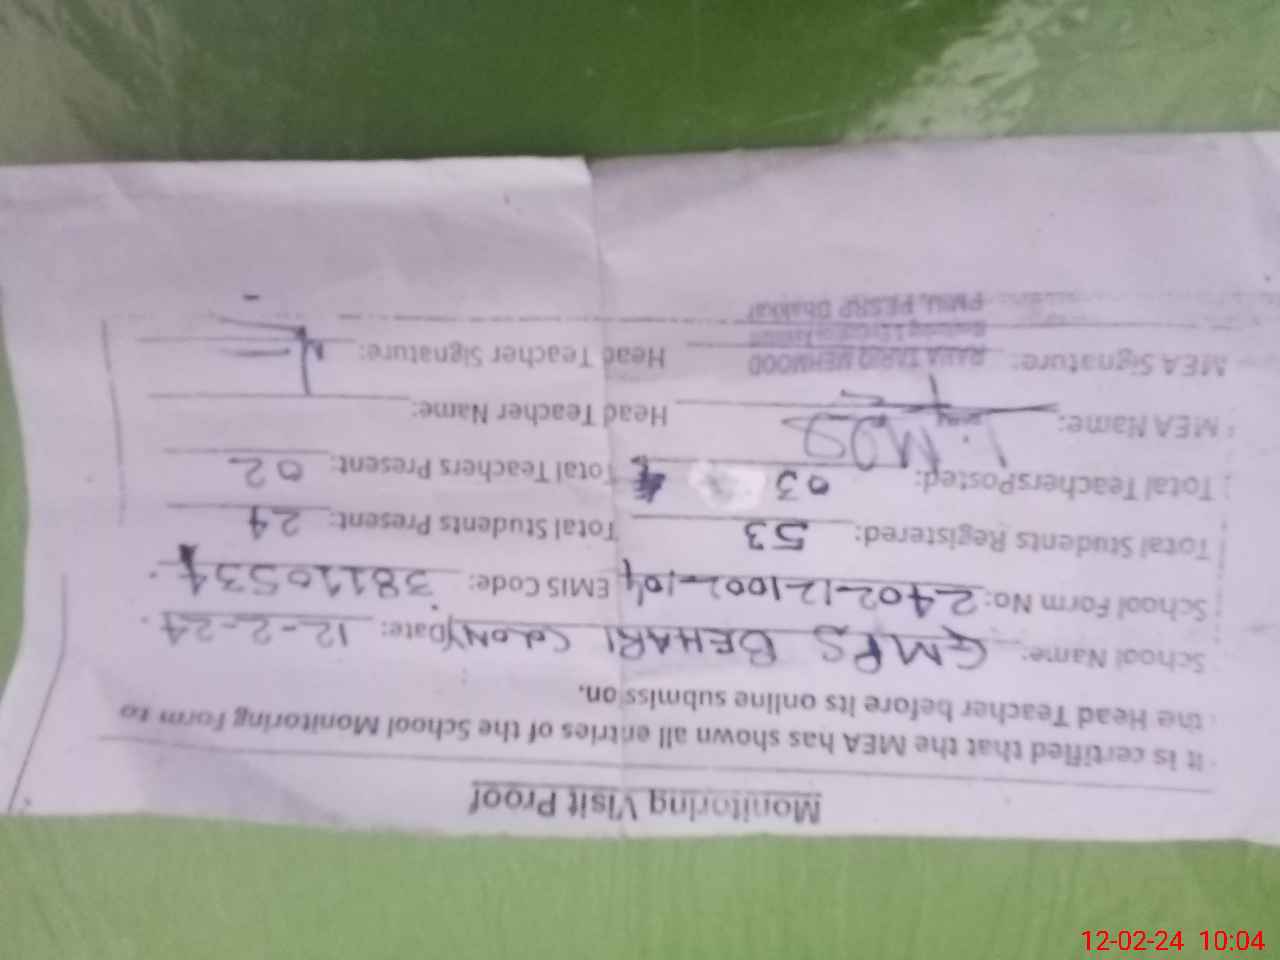 Monitoring Visit Proof
It is certified that the MEA has shown all entries of the School Monitoring Form to
the Head Teacher before its online submission.
School Name: GMPS BEHARI COLONY Date: 12-2-24
School Form No: 2402-121002-104 EMIS Code: 38110534
Total Students Registered: 53 Total Students Present: 24
Total Teachers Posted: 03 Total Teachers Present: 02
MEA Name: Head Teacher Name:
MEA Signature: RANA TARIQ MEHMOOD Head Teacher Signature:
PMIU, PESRP Bhakkar
12-02-24 10:04